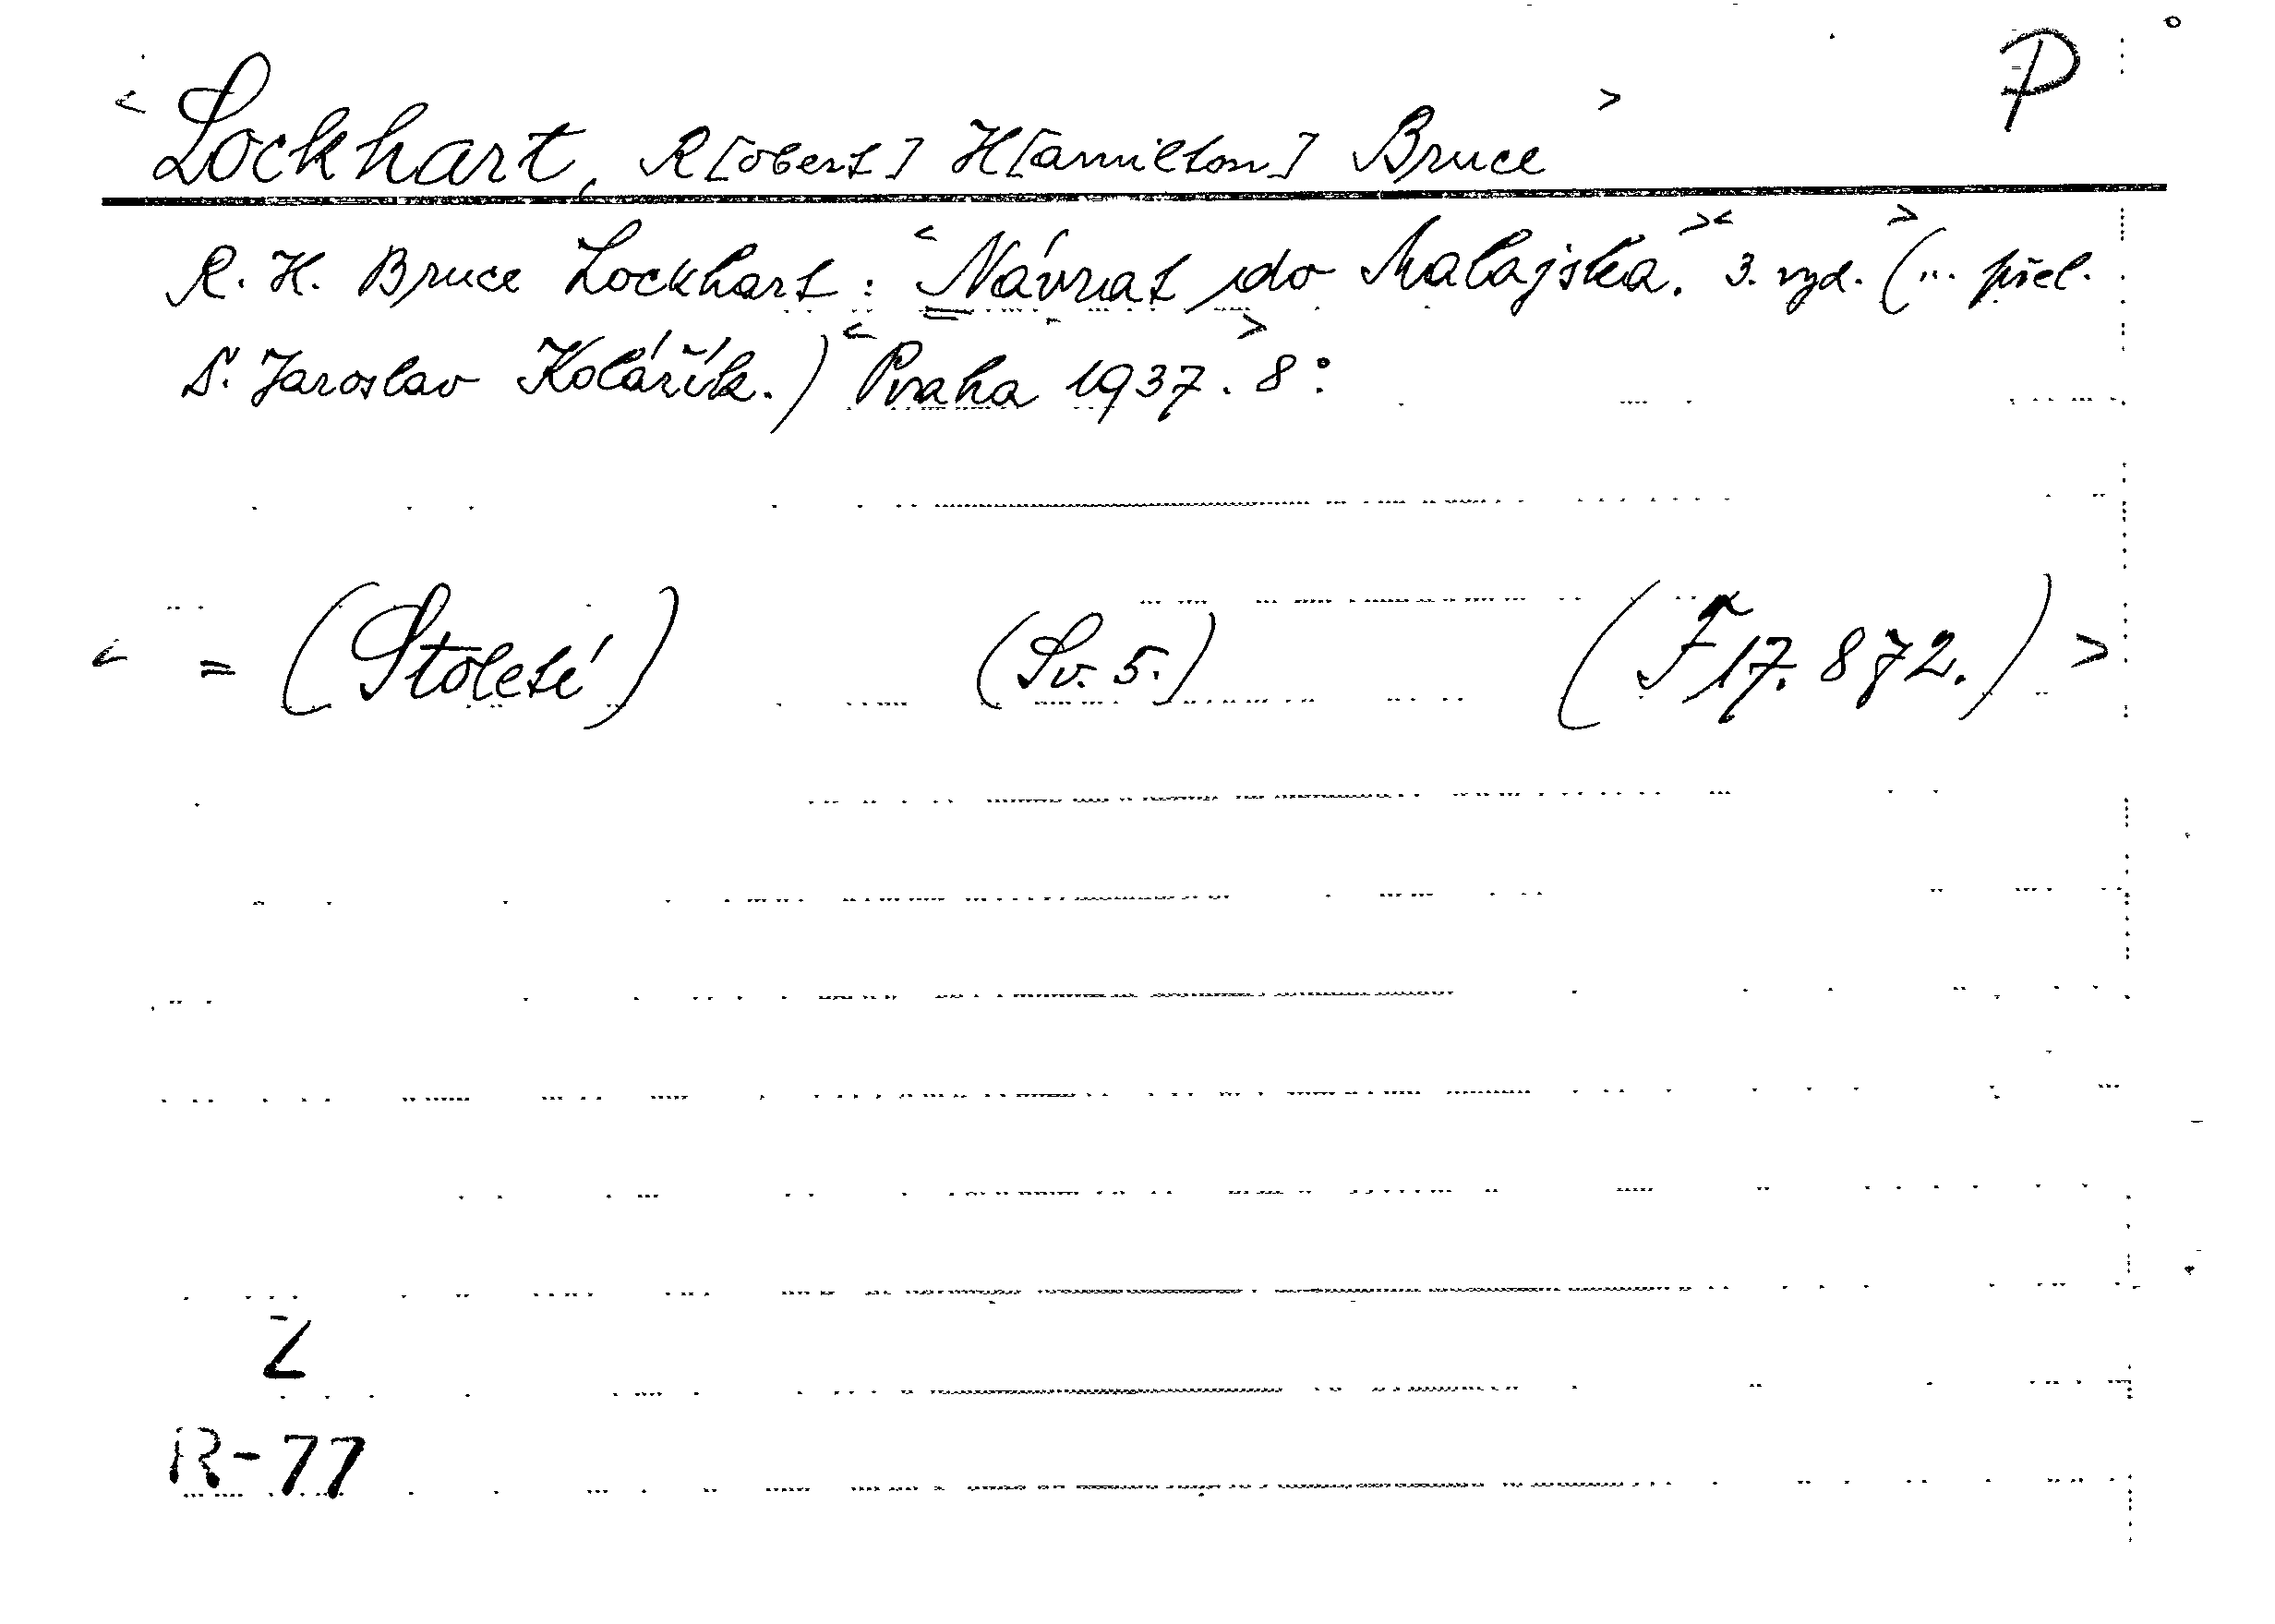 P
< Lockhart, R[obert] H[amilton] Bruce >
R. H. Bruce Lockhart: <Návrat do Malajska.> <3. vyd.> (... přel.
S. Jaroslav Kolářík.) <Praha 1937.> 8°.
< = (Století) (Sv. 5.) (F 17.872.) >
Z
R-77